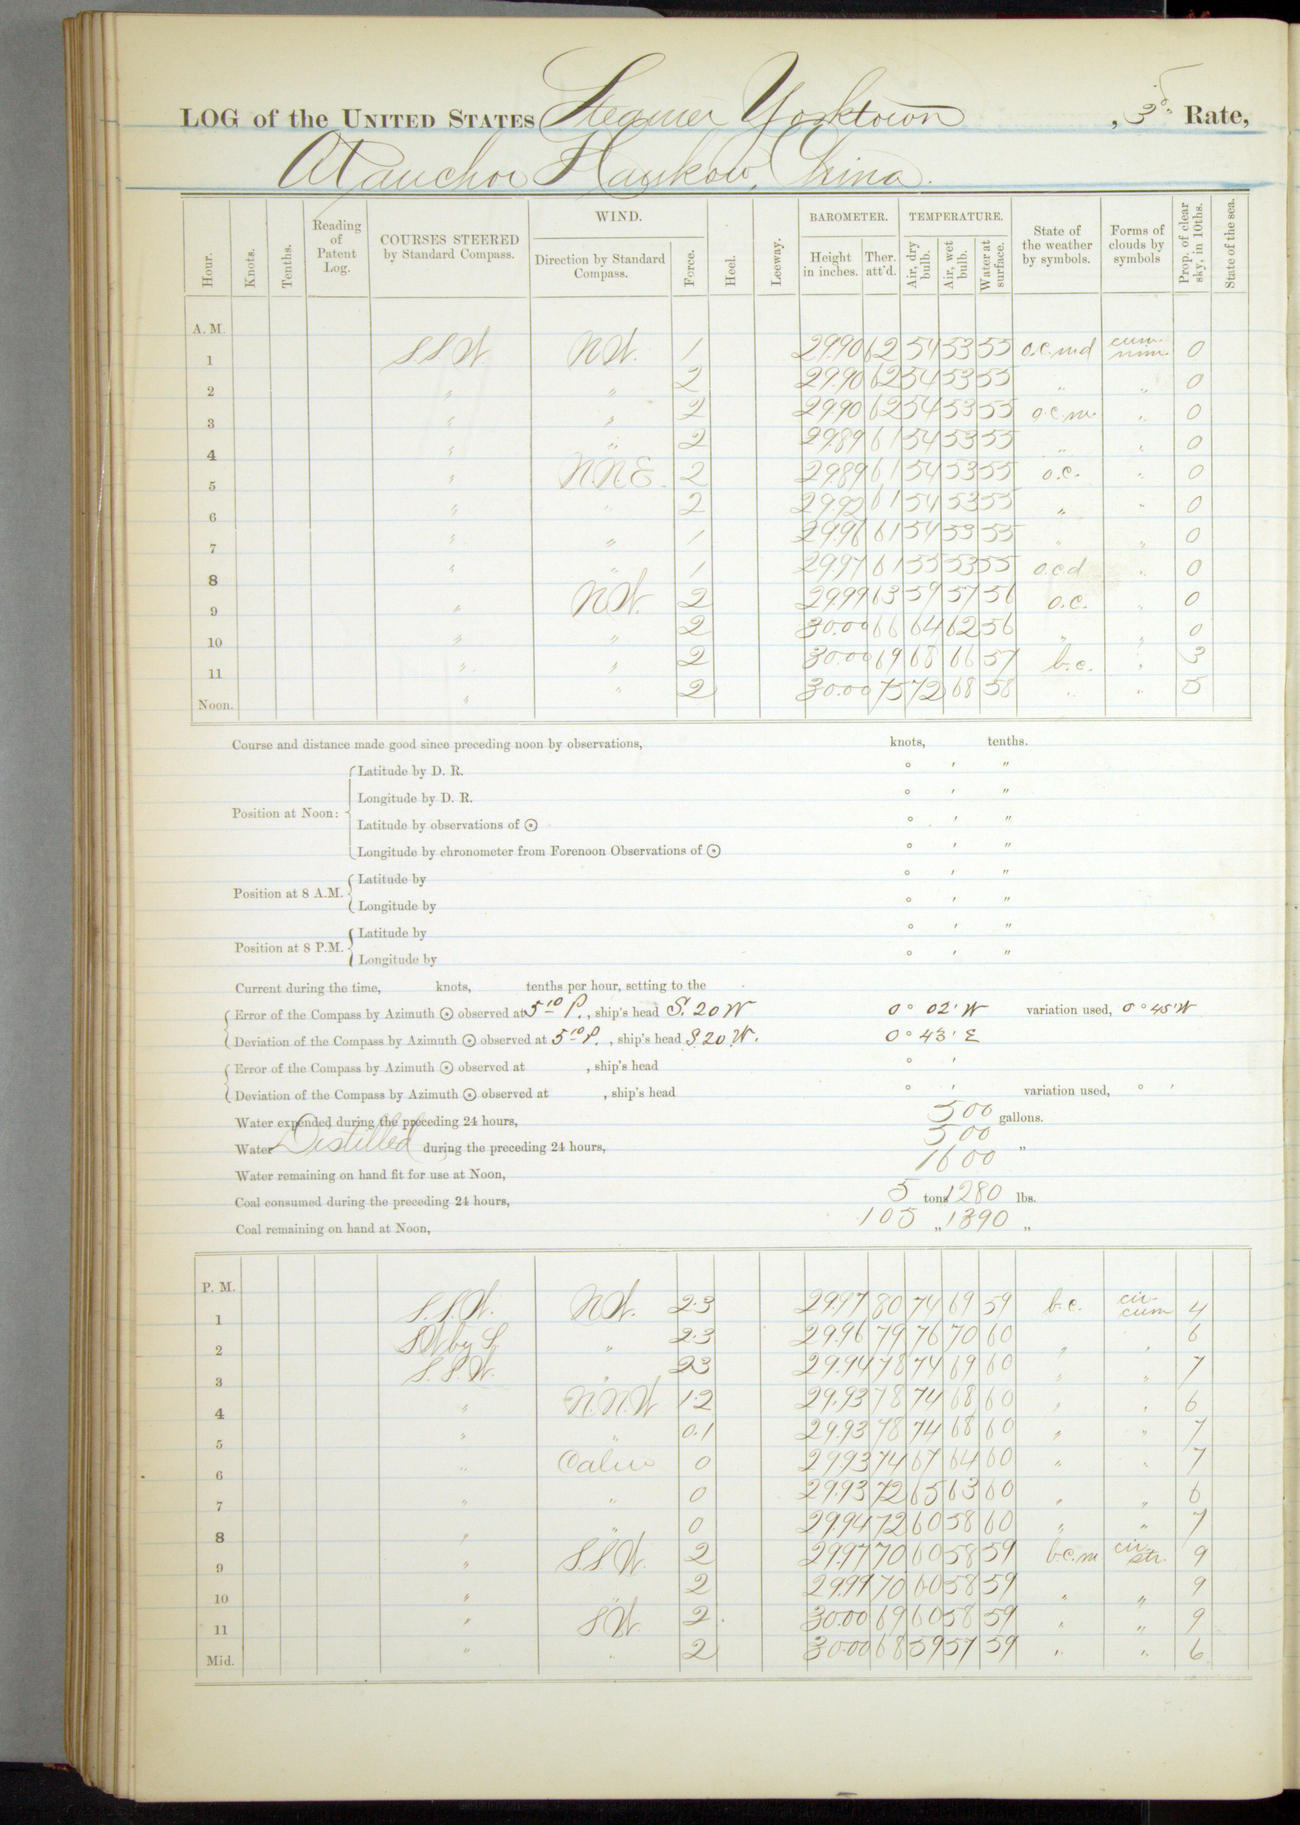 LOG of the UNITED STATES Steamer Yorktown, 3d. Rate,
At anchor Hankow, China.
Hour. Knots. Tenths. Reading of Patent Log. COURSES STEERED by Standard Compass. WIND. Direction by Standard Compass. Force. Heel. Leeway. BAROMETER. Height in inches. Ther. att'd. TEMPERATURE. Air, dry bulb. Air, wet bulb. Water at surface. State of the weather by symbols. Forms of clouds by symbols Prop. of clear sky, in 10ths. State of the sea.
A. M.
1 S.S.W. N.W. 1 29.90 62 54 53 55 o.c.m.d cum. nim. 0
2 " " 2 29.90 62 54 53 55 " " 0
3 " " 2 29.90 62 54 53 55 o.c.m. " 0
4 " " 2 29.89 61 54 53 55 " " 0
5 " N.N.E. 2 29.89 61 54 53 55 o.c. " 0
6 " " 2 29.92 61 54 53 55 " " 0
7 " " 1 29.96 61 54 53 55 " " 0
8 " " 1 29.97 61 55 53 55 o.c.d " 0
9 " N.W. 2 29.99 63 59 57 56 o.c. " 0
10 " " 2 30.00 66 64 62 56 " " 0
11 " " 2 30.00 69 68 66 57 b.c. " 3
Noon. " " 2 30.00 75 72 68 58 " " 5
Course and distance made good since preceding noon by observations, knots, tenths.
Position at Noon: Latitude by D. R. ° ′ ″
Longitude by D. R. ° ′ ″
Latitude by observations of ☉ ° ′ ″
Longitude by chronometer from Forenoon Observations of ☉ ° ′ ″
Position at 8 A.M. Latitude by ° ′ ″
Longitude by ° ′ ″
Position at 8 P.M. Latitude by ° ′ ″
Longitude by ° ′ ″
Current during the time, knots, tenths per hour, setting to the
Error of the Compass by Azimuth ☉ observed at 5 10 P., ship's head S. 20 W 0° 02' W variation used, 0° 45' W
Deviation of the Compass by Azimuth ☉ observed at 5 10 P., ship's head S 20 W. 0° 43' E
Error of the Compass by Azimuth ☉ observed at , ship's head ° ′
Deviation of the Compass by Azimuth ☉ observed at , ship's head ° ′ variation used, ° ′
Water expended during the preceding 24 hours, 500 gallons.
Water Distilled during the preceding 24 hours, 500 "
Water remaining on hand fit for use at Noon, 1600
Coal consumed during the preceding 24 hours, 5 tons 1280 lbs.
Coal remaining on hand at Noon, 105 " 1390 "
P. M.
1 S.S.W. N.W. 2.3 29.97 80 74 69 59 b.c. cir. cum 4
2 SW by S " 2.3 29.96 79 76 70 60 " " 6
3 S.S.W. " 2 3 29.94 78 74 69 60 " " 7
4 " N.N.W 1.2 29.93 78 74 68 60 " " 6
5 " " 0.1 29.93 78 74 68 60 " " 7
6 " Calm 0 29.93 74 67 64 60 " " 7
7 " " 0 29.93 72 65 63 60 " " 6
8 " " 0 29.94 72 60 58 60 " " 7
9 " S.S.W. 2 29.97 70 60 58 59 b.c.m cir. str. 9
10 " " 2 29.99 70 60 58 59 " " 9
11 " SW. 2 30.00 69 60 58 59 " " 9
Mid. " " 2 30.00 68 59 57 59 " " 6